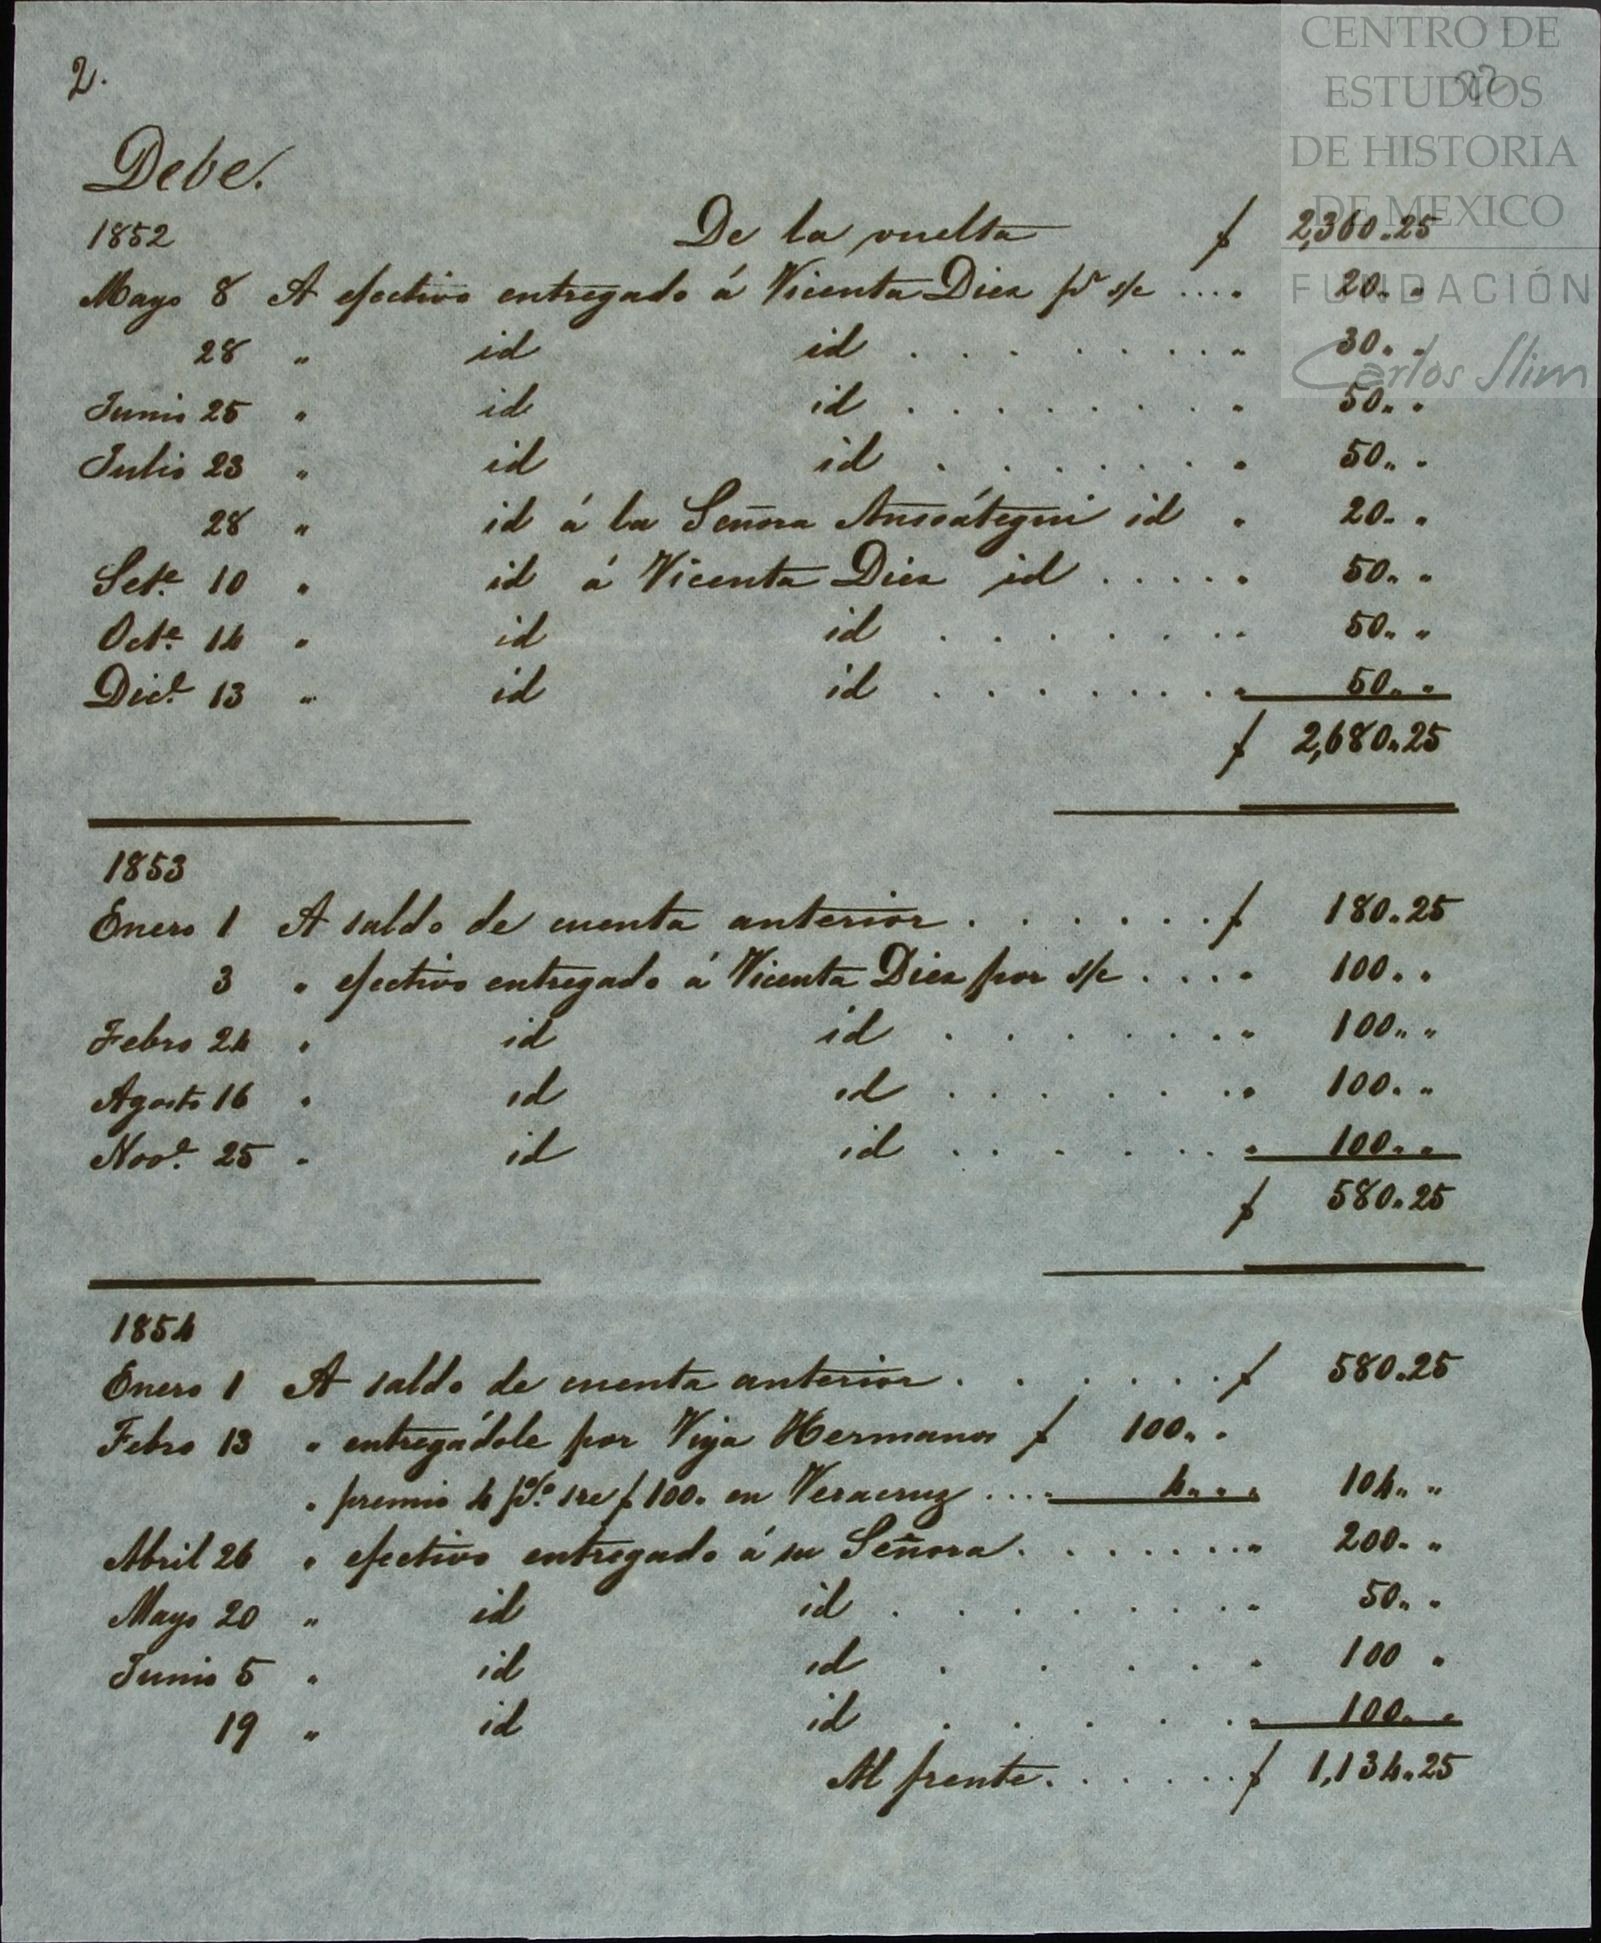 CENTRO DE
ESTUDIOS
DE HISTORIA
DE MEXICO
FUNDACIÓN
Carlos Slim
2.
22
Debe.
1852 De la vuelta $ 2,360.25
Mayo 8 A efectivo entregado á Vicenta Diez pr s/c .... 20.. "
28 " id id . . . . . . . . 30.. "
Junio 25 " id id . . . . . . . . 50.. "
Julio 23 " id id . . . . . . . 50.. "
28 " id á la Señora Ansoátegui id . 20.. "
Sete. 10 " id á Vicenta Diez id . . . . . 50.. "
Octe. 14 " id id . . . . . . . 50.. "
Dice. 13 " id id . . . . . . . 50.. "
$ 2,680.25
1853
Enero 1 A saldo de cuenta anterior . . . . . . $ 180.25
3 " efectivo entregado á Vicenta Diez por s/c . . . . 100.. "
Febro 24 " id id . . . . . . . 100.. "
Agosto 16 " id id . . . . . . . 100.. "
Nove. 25 " id id . . . . . . . 100.. "
$ 580.25
1854
Enero 1 A saldo de cuenta anterior . . . . . . $ 580.25
Febro 13 " entregádole por Viya Hermanos $ 100.. "
" premio 4 p%. sre $ 100. en Veracruz .... 4.. " 104.. "
Abril 26 " efectivo entregado á su Señora . . . . . . . 200.. "
Mayo 20 " id id . . . . . . . . 50.. "
Junio 5 " id id . . . . . . 100 "
19 " id id . . . . . . 100.. "
Al frente . . . . . . $ 1,134.25